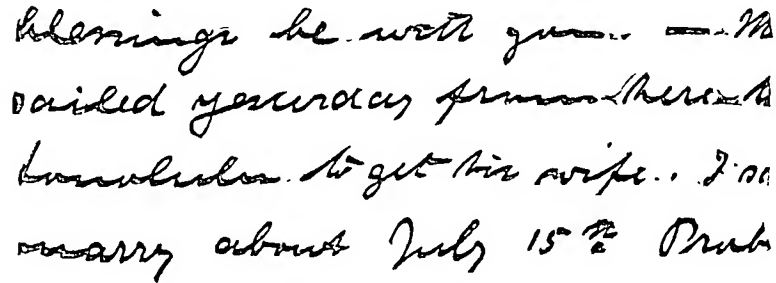 blessings be with you. — M
sailed yesterday from here to
Honolulu to get his wife. I
marry about July 15th Prob